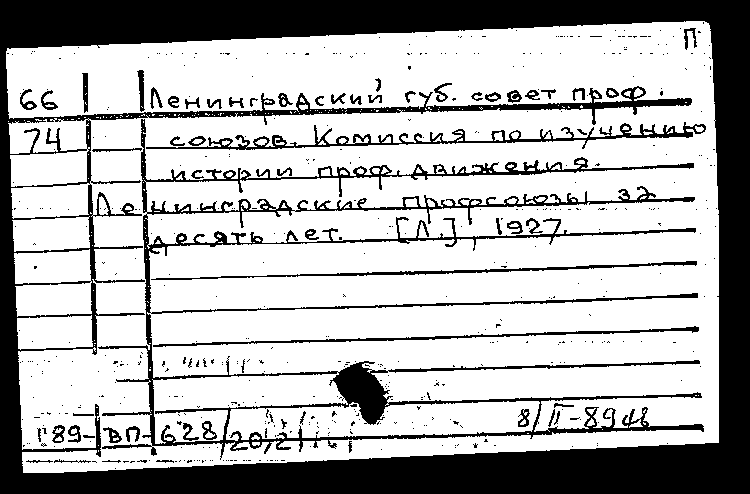 П
66 Ленинградский губ. совет проф.
74 союзов. Комиссия по изучению
истории проф. движения.
Ленинградские профсоюзы за
десять лет. [Л.], 1927.
89-ВП-628/20,2/ 8/II-89